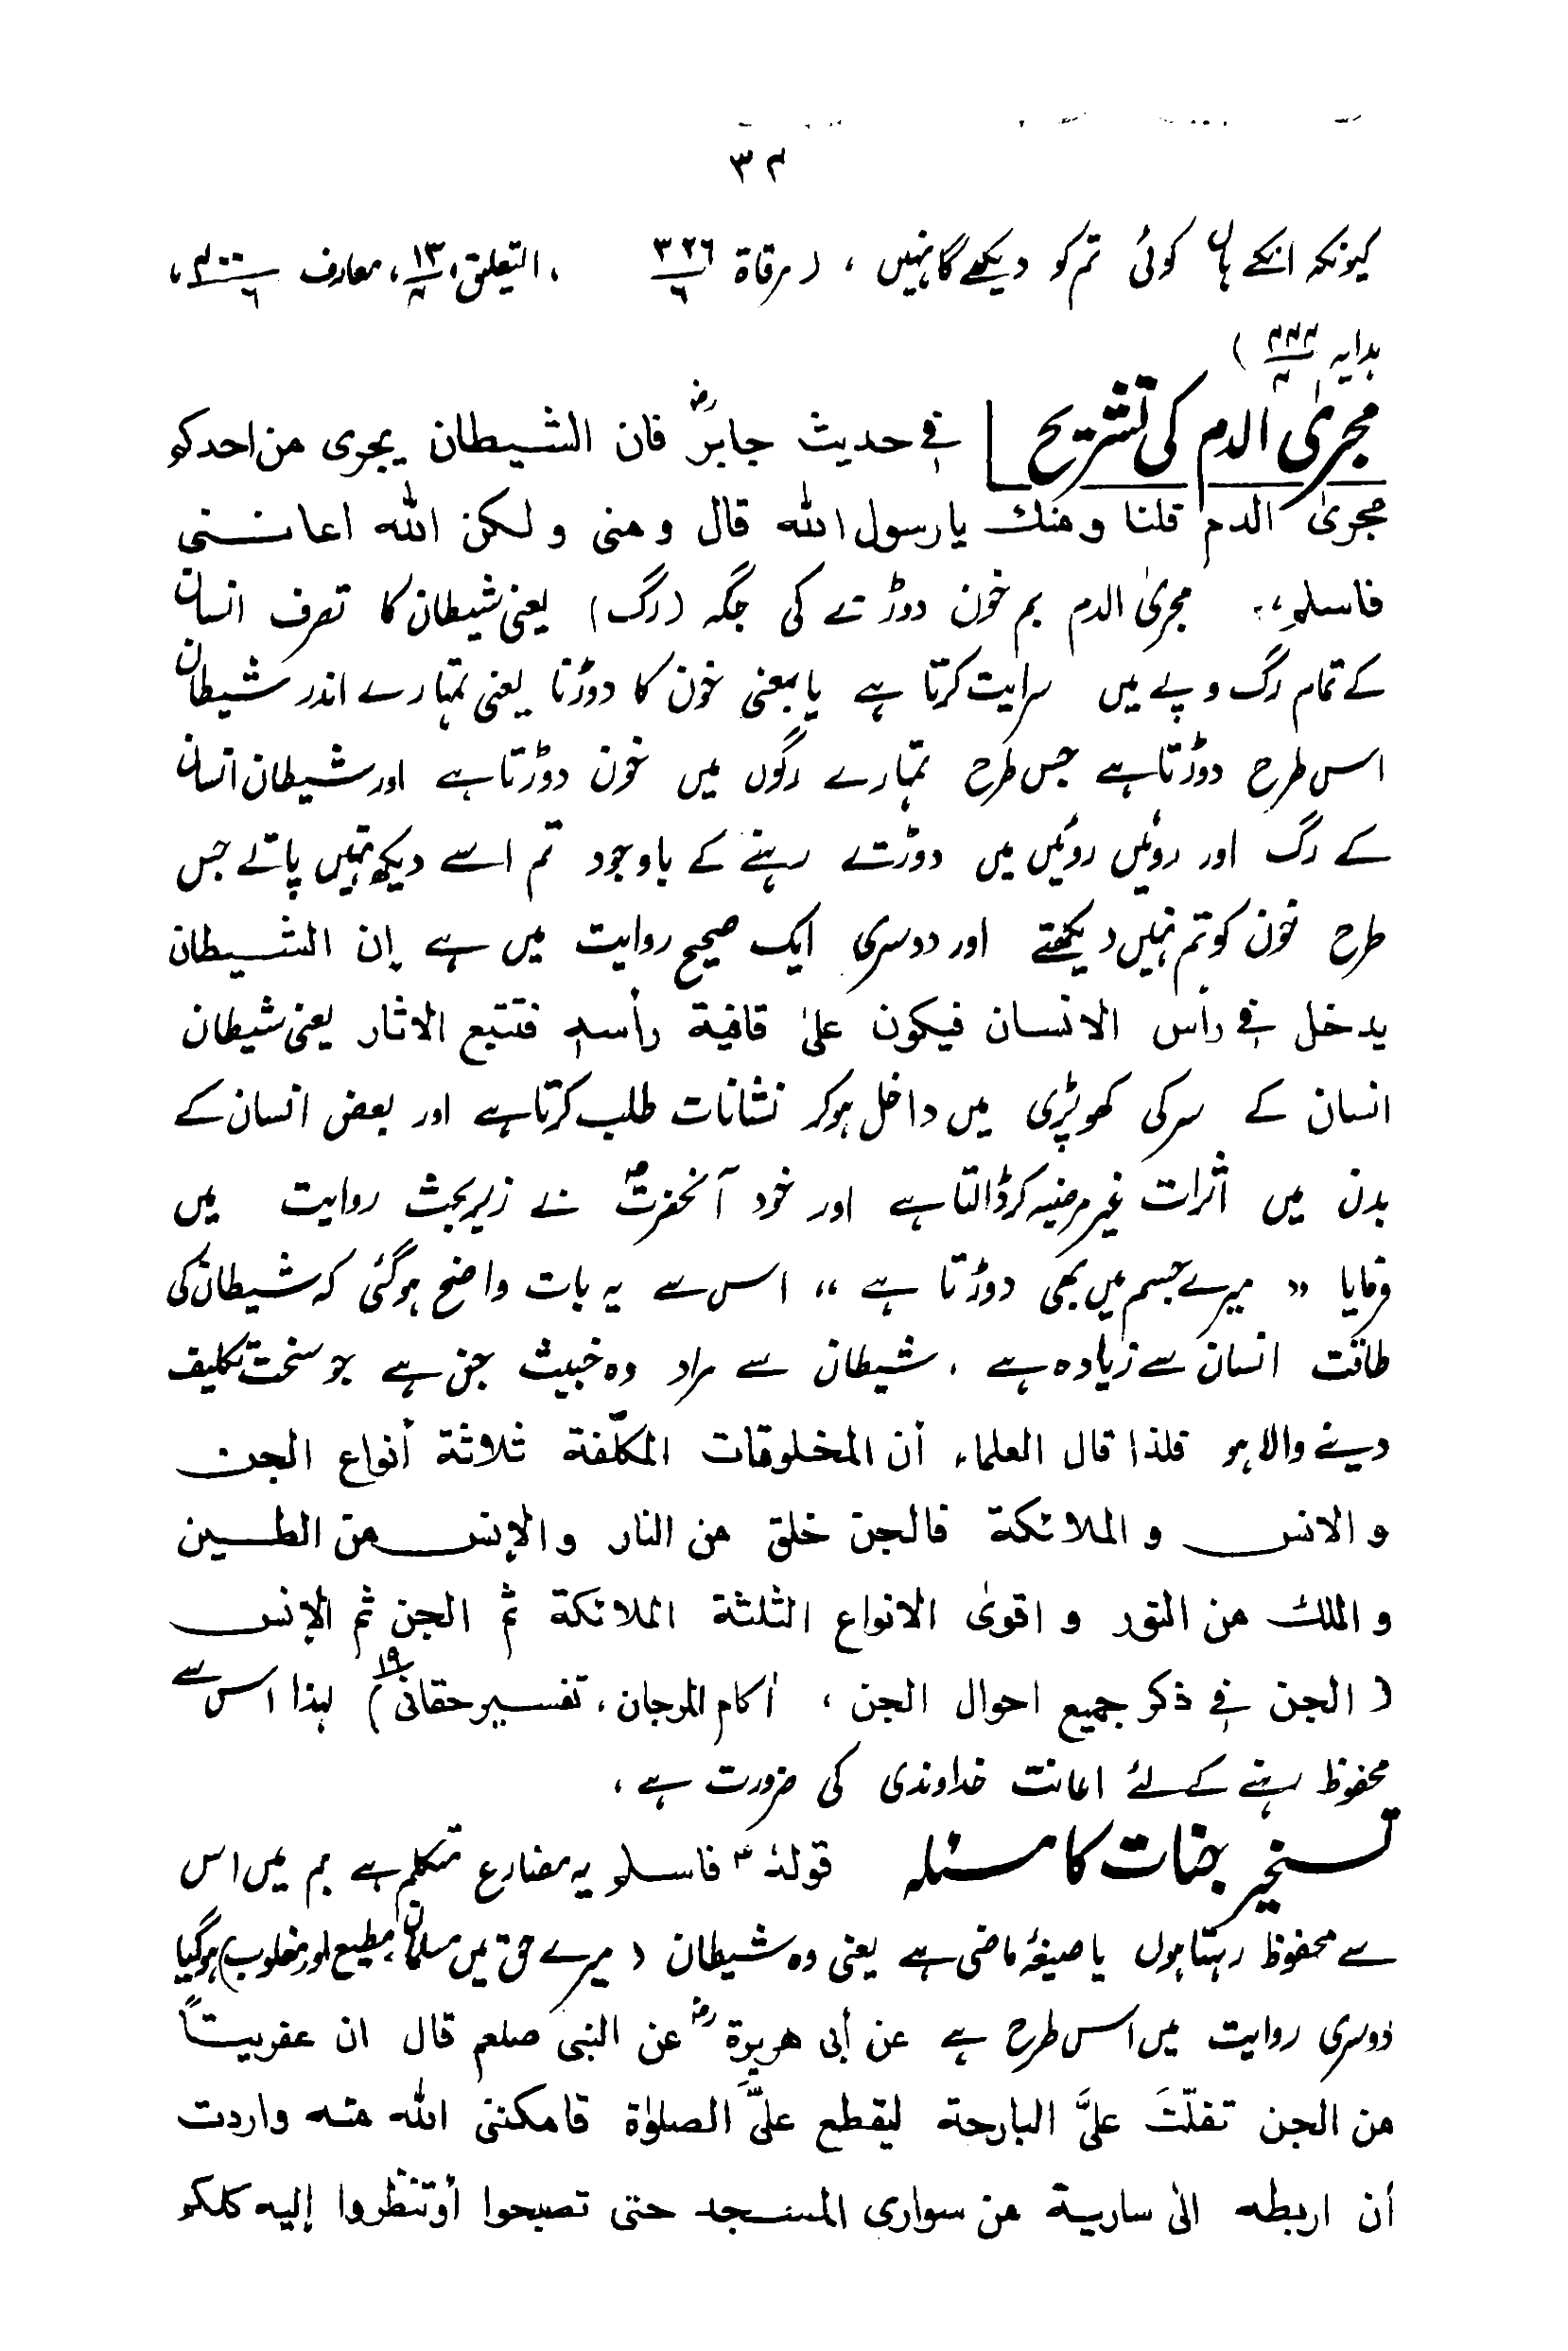 ۳۲
کیونکہ انکے ہاں کوئی تم کو دیکھے گا نہیں ، ( مرقاة ۳۲۶/۶ ، التعلیق ۱۳/۴ ، معارف ۴۰۰/۶ ،
ہدایہ )
مجریٰ الدم کی تشریح | فی حدیث جابرؓ فان الشیطان یجری من احدکم
مجریٰ الدم قلنا ومنك یا رسول الله قال ومنی ولکن الله اعاننی
فاسلم ،، مجریٰ الدم بم خون دوڑنے کی جگہ (رگ) یعنی شیطان کا تصرف انسان
کے تمام رگ و پے میں سرایت کرتا ہے یا بمعنی خون کا دوڑنا یعنی تمہارے اندر شیطان
اس طرح دوڑتا ہے جس طرح تمہارے رگوں میں خون دوڑتا ہے اور شیطان انسان
کے رگ اور روئیں روئیں میں دوڑتے رہنے کے باوجود تم اسے دیکھ نہیں پاتے جس
طرح خون کو تم نہیں دیکھتے اور دوسری ایک صحیح روایت میں ہے إن الشیطان
یدخل فی رأس الانسان فیکون علیٰ قافیة رأسه فتتبع الاثار یعنی شیطان
انسان کے سر کی کھوپڑی میں داخل ہو کر نشانات طلب کرتا ہے اور بعض انسان کے
بدن میں اثرات غیر مرضیہ کر ڈالتا ہے اور خود آنحضرتؐ نے زیر بحث روایت میں
فرمایا ،، میرے جسم میں بھی دوڑتا ہے ،، اس سے یہ بات واضح ہو گئی کہ شیطان کی
طاقت انسان سے زیادہ ہے ، شیطان سے مراد وہ خبیث جن ہے جو سخت تکلیف
دینے والا ہو فلذا قال العلماء أن المخلوقات المکلّفة ثلاثة أنواع الجن
و الانس و الملائکة فالجن خلق من النار والإنس من الطین
و الملك من النور و اقویٰ الانواع الثلثة الملائکة ثم الجن ثم الإنس
( الجن فی ذکر جمیع احوال الجن ، أکام المرجان ، تفسیر حقانی ۱۹ ) لہذا اس سے
محفوظ رہنے کے لئے اعانت خداوندی کی ضرورت ہے ،
تسخیر جنات کا مسئلہ قولهٗ فاسلم یہ مضارع متکلم ہے بم میں اس
سے محفوظ رہتا ہوں یا صیغۂ ماضی ہے یعنی وہ شیطان ( میرے حق میں مسلمان ، مطیع اور مغلوب ) ہو گیا
دوسری روایت میں اس طرح ہے عن أبی هریرةؓ عن النبی صلعم قال ان عفریتاً
من الجن تفلّتَ علیَّ البارحة لیقطع علیَّ الصلوٰة فامکننی الله منه واردت
أن اربطه الیٰ ساریة من سواری المسجد حتی تصبحوا أو تنظروا إلیه کلکم